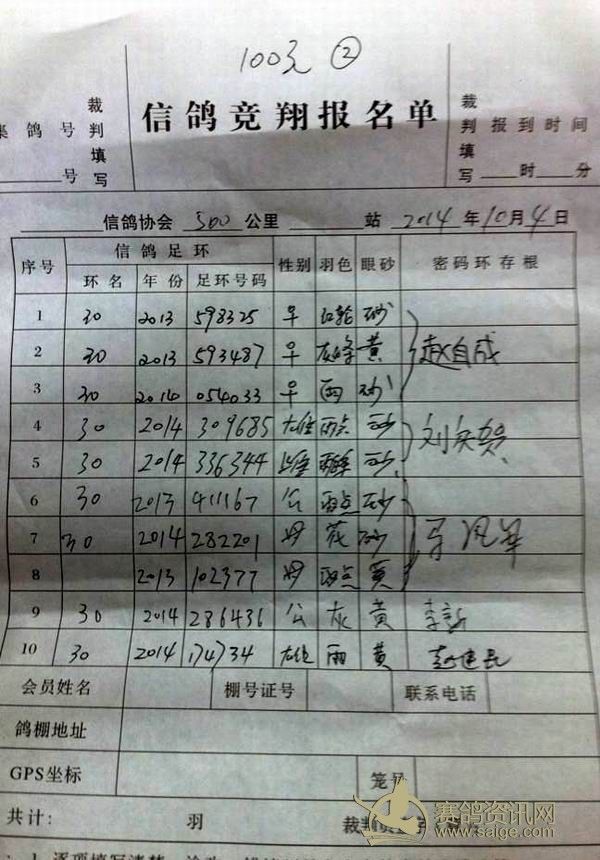 100元 ②
裁判填写
集鸽号
号
信鸽竞翔报名单
裁判填写
报到时间
时 分
信鸽协会 500 公里 站 2014 年 10 月 4 日
序号 信鸽足环 性别 羽色 眼砂 密码环存根
环名 年份 足环号码
1 30 2013 598325 砂
2 30 2013 593487 黄 赵自成
3 30 2014 054033 雨 砂
4 30 2014 309685 雄 雨点 砂
5 30 2014 336344 雄 砂
6 30 2013 411167 公 雨点 砂
7 30 2014 282201 母 花 砂
8 2013 102377 母 雨点 黄
9 30 2014 286436 公 灰 黄 李新
10 30 2014 174734 雄 雨 黄
会员姓名 棚号证号 联系电话
鸽棚地址
GPS坐标 笼号
共计: 羽 裁判员
赛鸽资讯网
www.saige.com